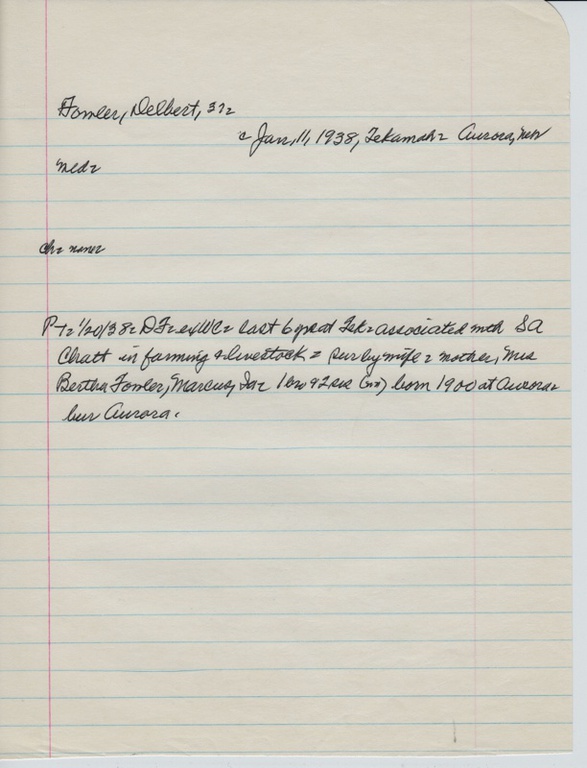 Fowler, Delbert, 37=
c Jan. 11, 1938, Tekamah= Aurora, Neb
Med=
Ch= none=
P-T= 1/20/38= DF= ex WC= last 6 yrs at Tek= associated with SA
Chatt in farming & livestock = sur by wife = mother, Mrs
Bertha Fowler, Marcus, Ia= 1 bro & 2 sis (nx) born 1900 at Aurora=
bur Aurora.